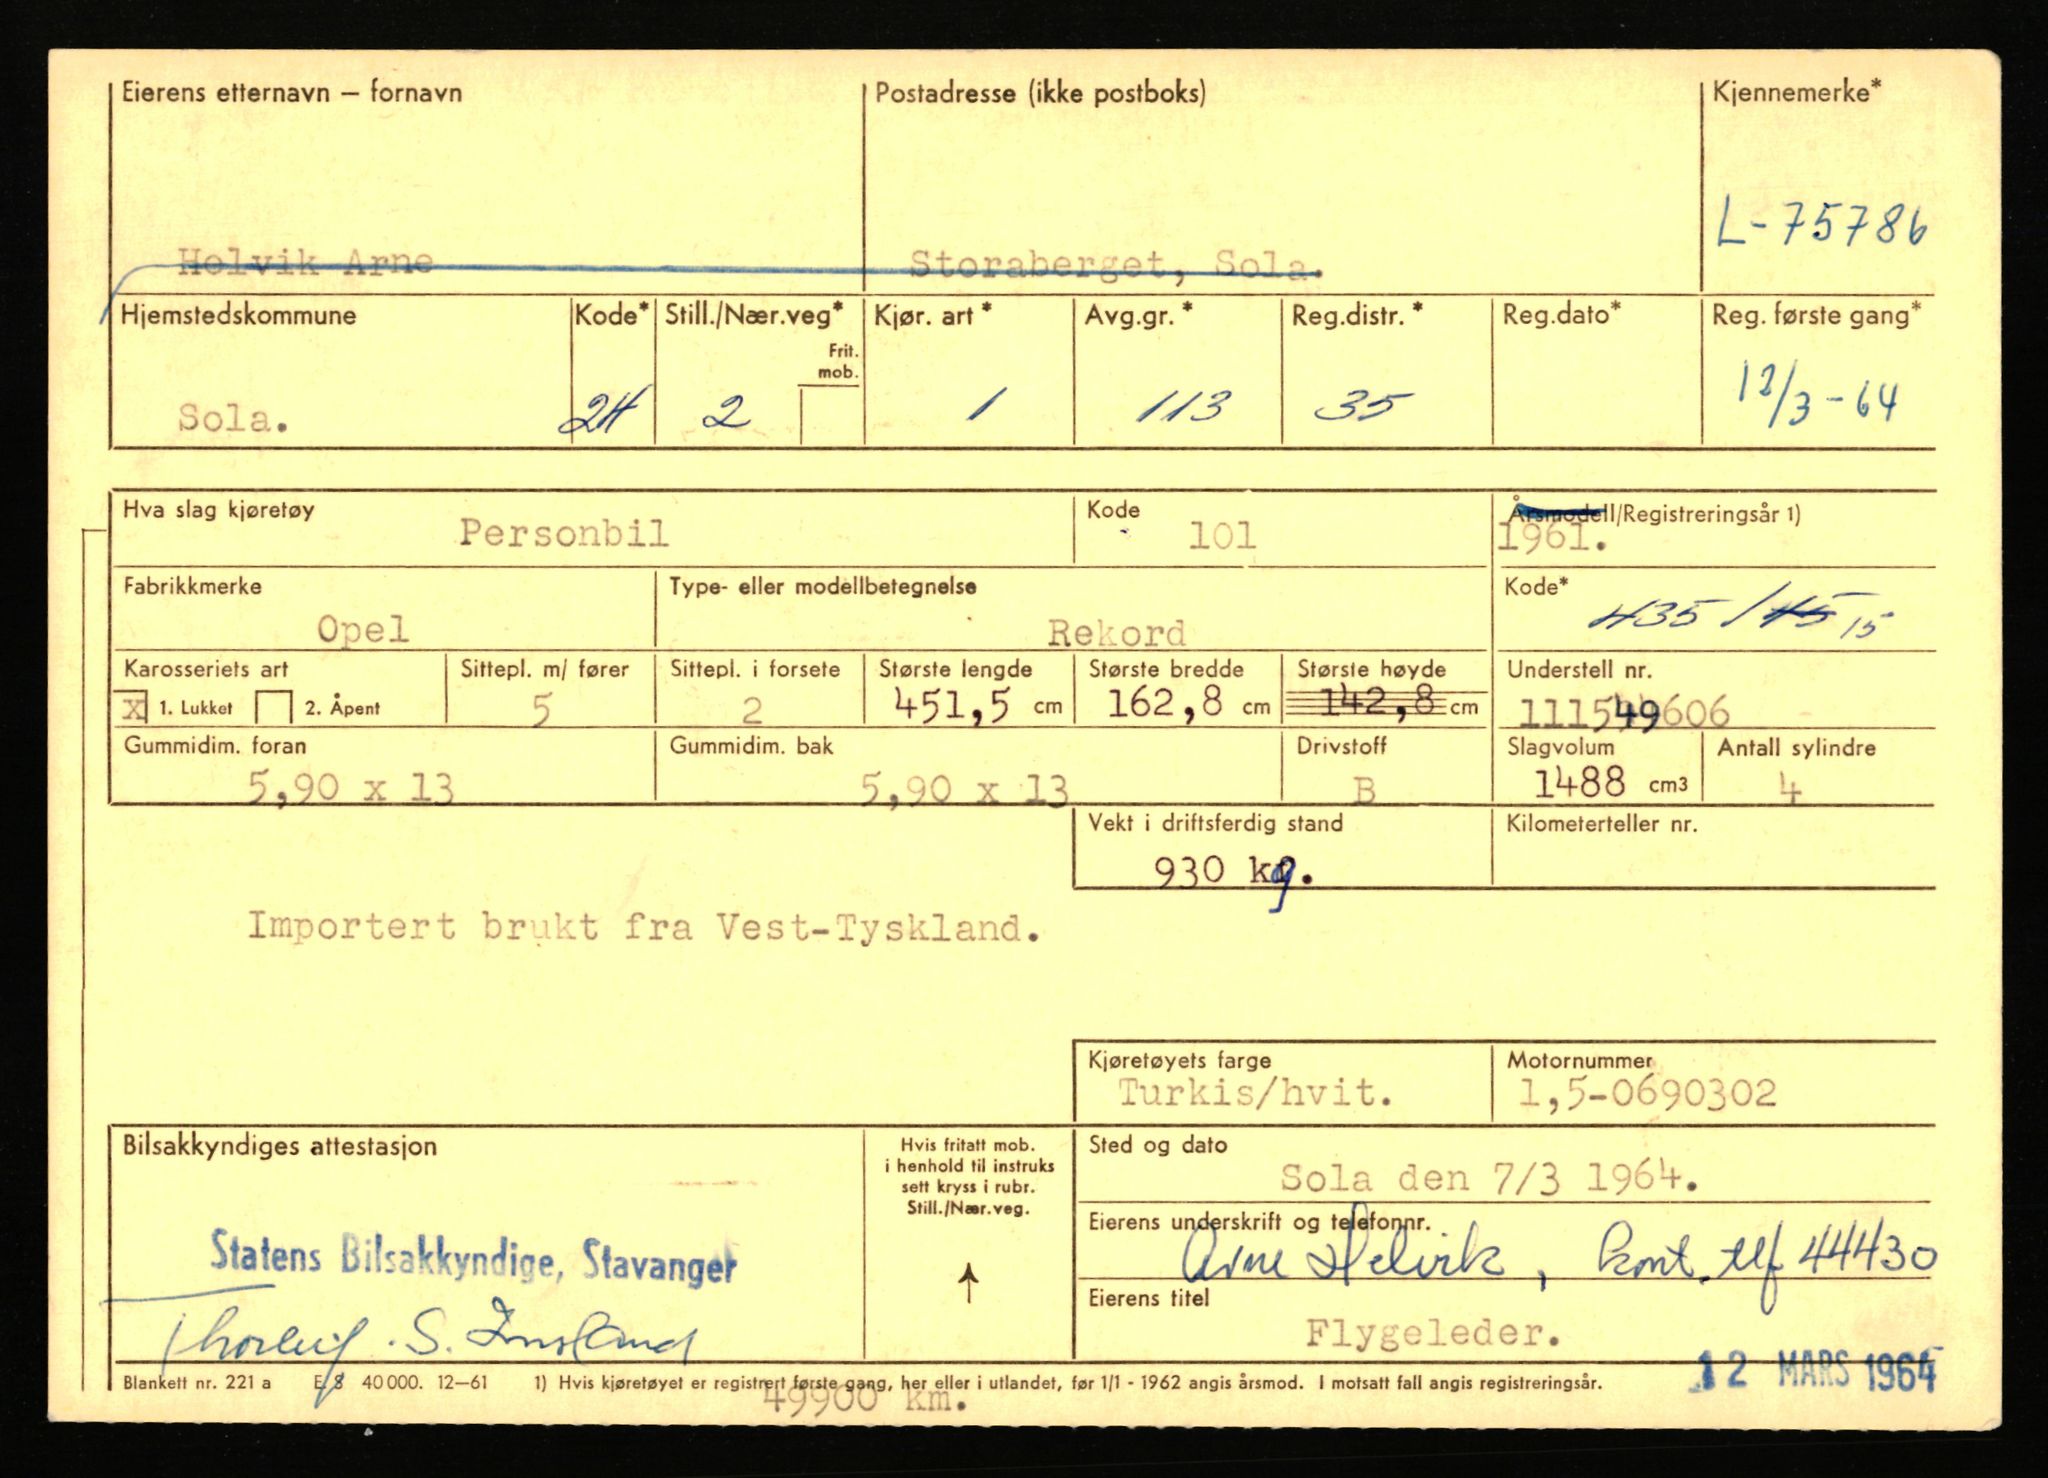 Eierens etternavn – fornavn Postadresse (ikke postboks) Kjennemerke*
L-75786
Helvik Arne Storaberget, Sola.
Hjemstedskommune Kode* Still./Nær.veg* Kjør. art* Avg.gr.* Reg.distr.* Reg.dato* Reg. første gang*
Frit.
mob.
Sola. 24 2 1 113 35 12/3-64
Hva slag kjøretøy Kode Årsmodell/Registreringsår 1)
Personbil 101 1961.
Fabrikkmerke Type- eller modellbetegnelse Kode*
Opel Rekord 435/45 15
Karosseriets art Sittepl. m/ fører Sittepl. i forsete Største lengde Største bredde Største høyde Understell nr.
x 1. Lukket 2. Åpent 5 2 451,5 cm 162,8 cm 142,8 cm 111549606
Gummidim. foran Gummidim. bak Drivstoff Slagvolum Antall sylindre
5,90 x 13 5,90 x 13 B 1488 cm3 4
Vekt i driftsferdig stand Kilometerteller nr.
930 kg.
Importert brukt fra Vest-Tyskland.
Kjøretøyets farge Motornummer
Turkis/hvit. 1,5-0690302
Bilsakkyndiges attestasjon Hvis fritatt mob. Sted og dato
i henhold til instruks
sett kryss i rubr.
Still./Nær.veg.
Sola den 7/3 1964.
Eierens underskrift og telefonnr.
Statens Bilsakkyndige, Stavanger Arne Helvik, kont. tlf 44430
Eierens titel
Thorleif S. Flygeleder.
12 MARS 1964
Blankett nr. 221 a E. 8 40 000. 12–61 1) Hvis kjøretøyet er registrert første gang, her eller i utlandet, før 1/1 - 1962 angis årsmod. I motsatt fall angis registreringsår.
49900 km.